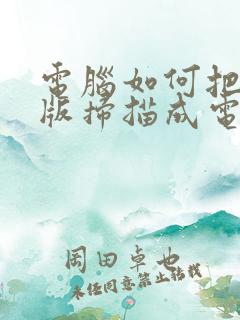 電腦如何把
版掃描成電
岡田卓也
未經同意禁止轉載